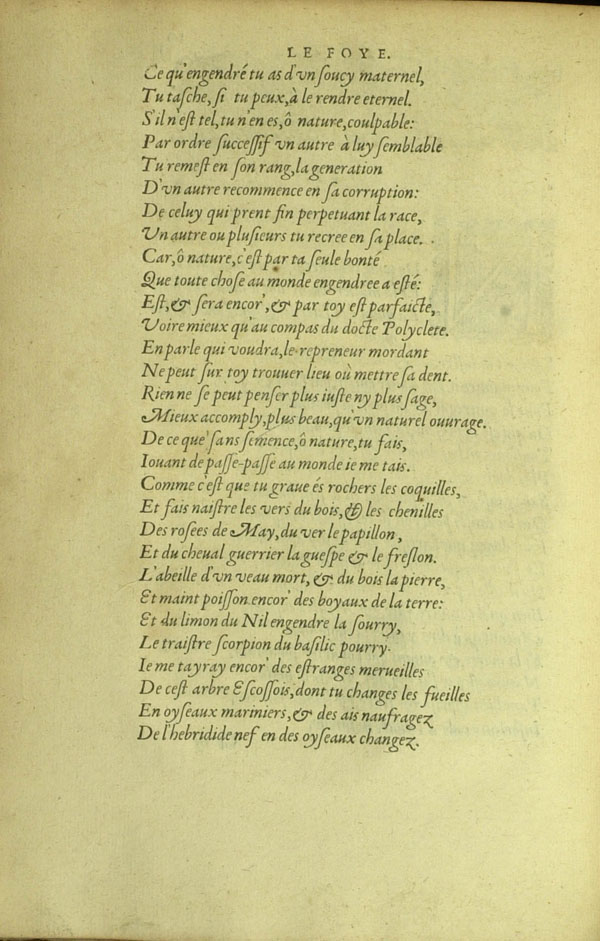 LE FOYE.
Ce qu'engendré tu as d'vn ſoucy maternel,
Tu taſche, ſi tu peux, à le rendre eternel.
S'il n'eſt tel, tu n'en es, ô nature, coulpable:
Par ordre ſucceſſif vn autre à luy ſemblable
Tu remeſt en ſon rang, la generation
D'vn autre recommence en ſa corruption:
De celuy qui prent fin perpetuant la race,
Vn autre ou pluſieurs tu recree en ſa place.
Car, ô nature, c'eſt par ta ſeule bonté
Que toute choſe au monde engendree a eſté:
Eſt, & ſera encor', & par toy eſt parfaicte,
Voire mieux qu'au compas du docte Polyclete.
En parle qui voudra, le repreneur mordant
Ne peut ſur toy trouuer lieu où mettre ſa dent.
Rien ne ſe peut penſer plus iuſte ny plus ſage,
Mieux accomply, plus beau, qu'vn naturel ouurage.
De ce que ſans ſemence, ô nature, tu fais,
Iouant de paſſe-paſſe au monde ie me tais.
Comme c'eſt que tu graue és rochers les coquilles,
Et fais naiſtre les vers du bois, & les chenilles
Des roſées de May, du ver le papillon,
Et du cheual guerrier la gueſpe & le freſlon.
L'abeille d'vn veau mort, & du bois la pierre,
Et maint poiſſon encor' des boyaux de la terre:
Et du limon du Nil engendre la ſourry,
Le traiſtre ſcorpion du baſilic pourry.
Ie me tayray encor' des eſtranges merueilles
De ceſt arbre Eſcoſſois, dont tu changes les fueilles
En oyſeaux mariniers, & des ais naufragez
De l'hebridide nef en des oyſeaux changez.